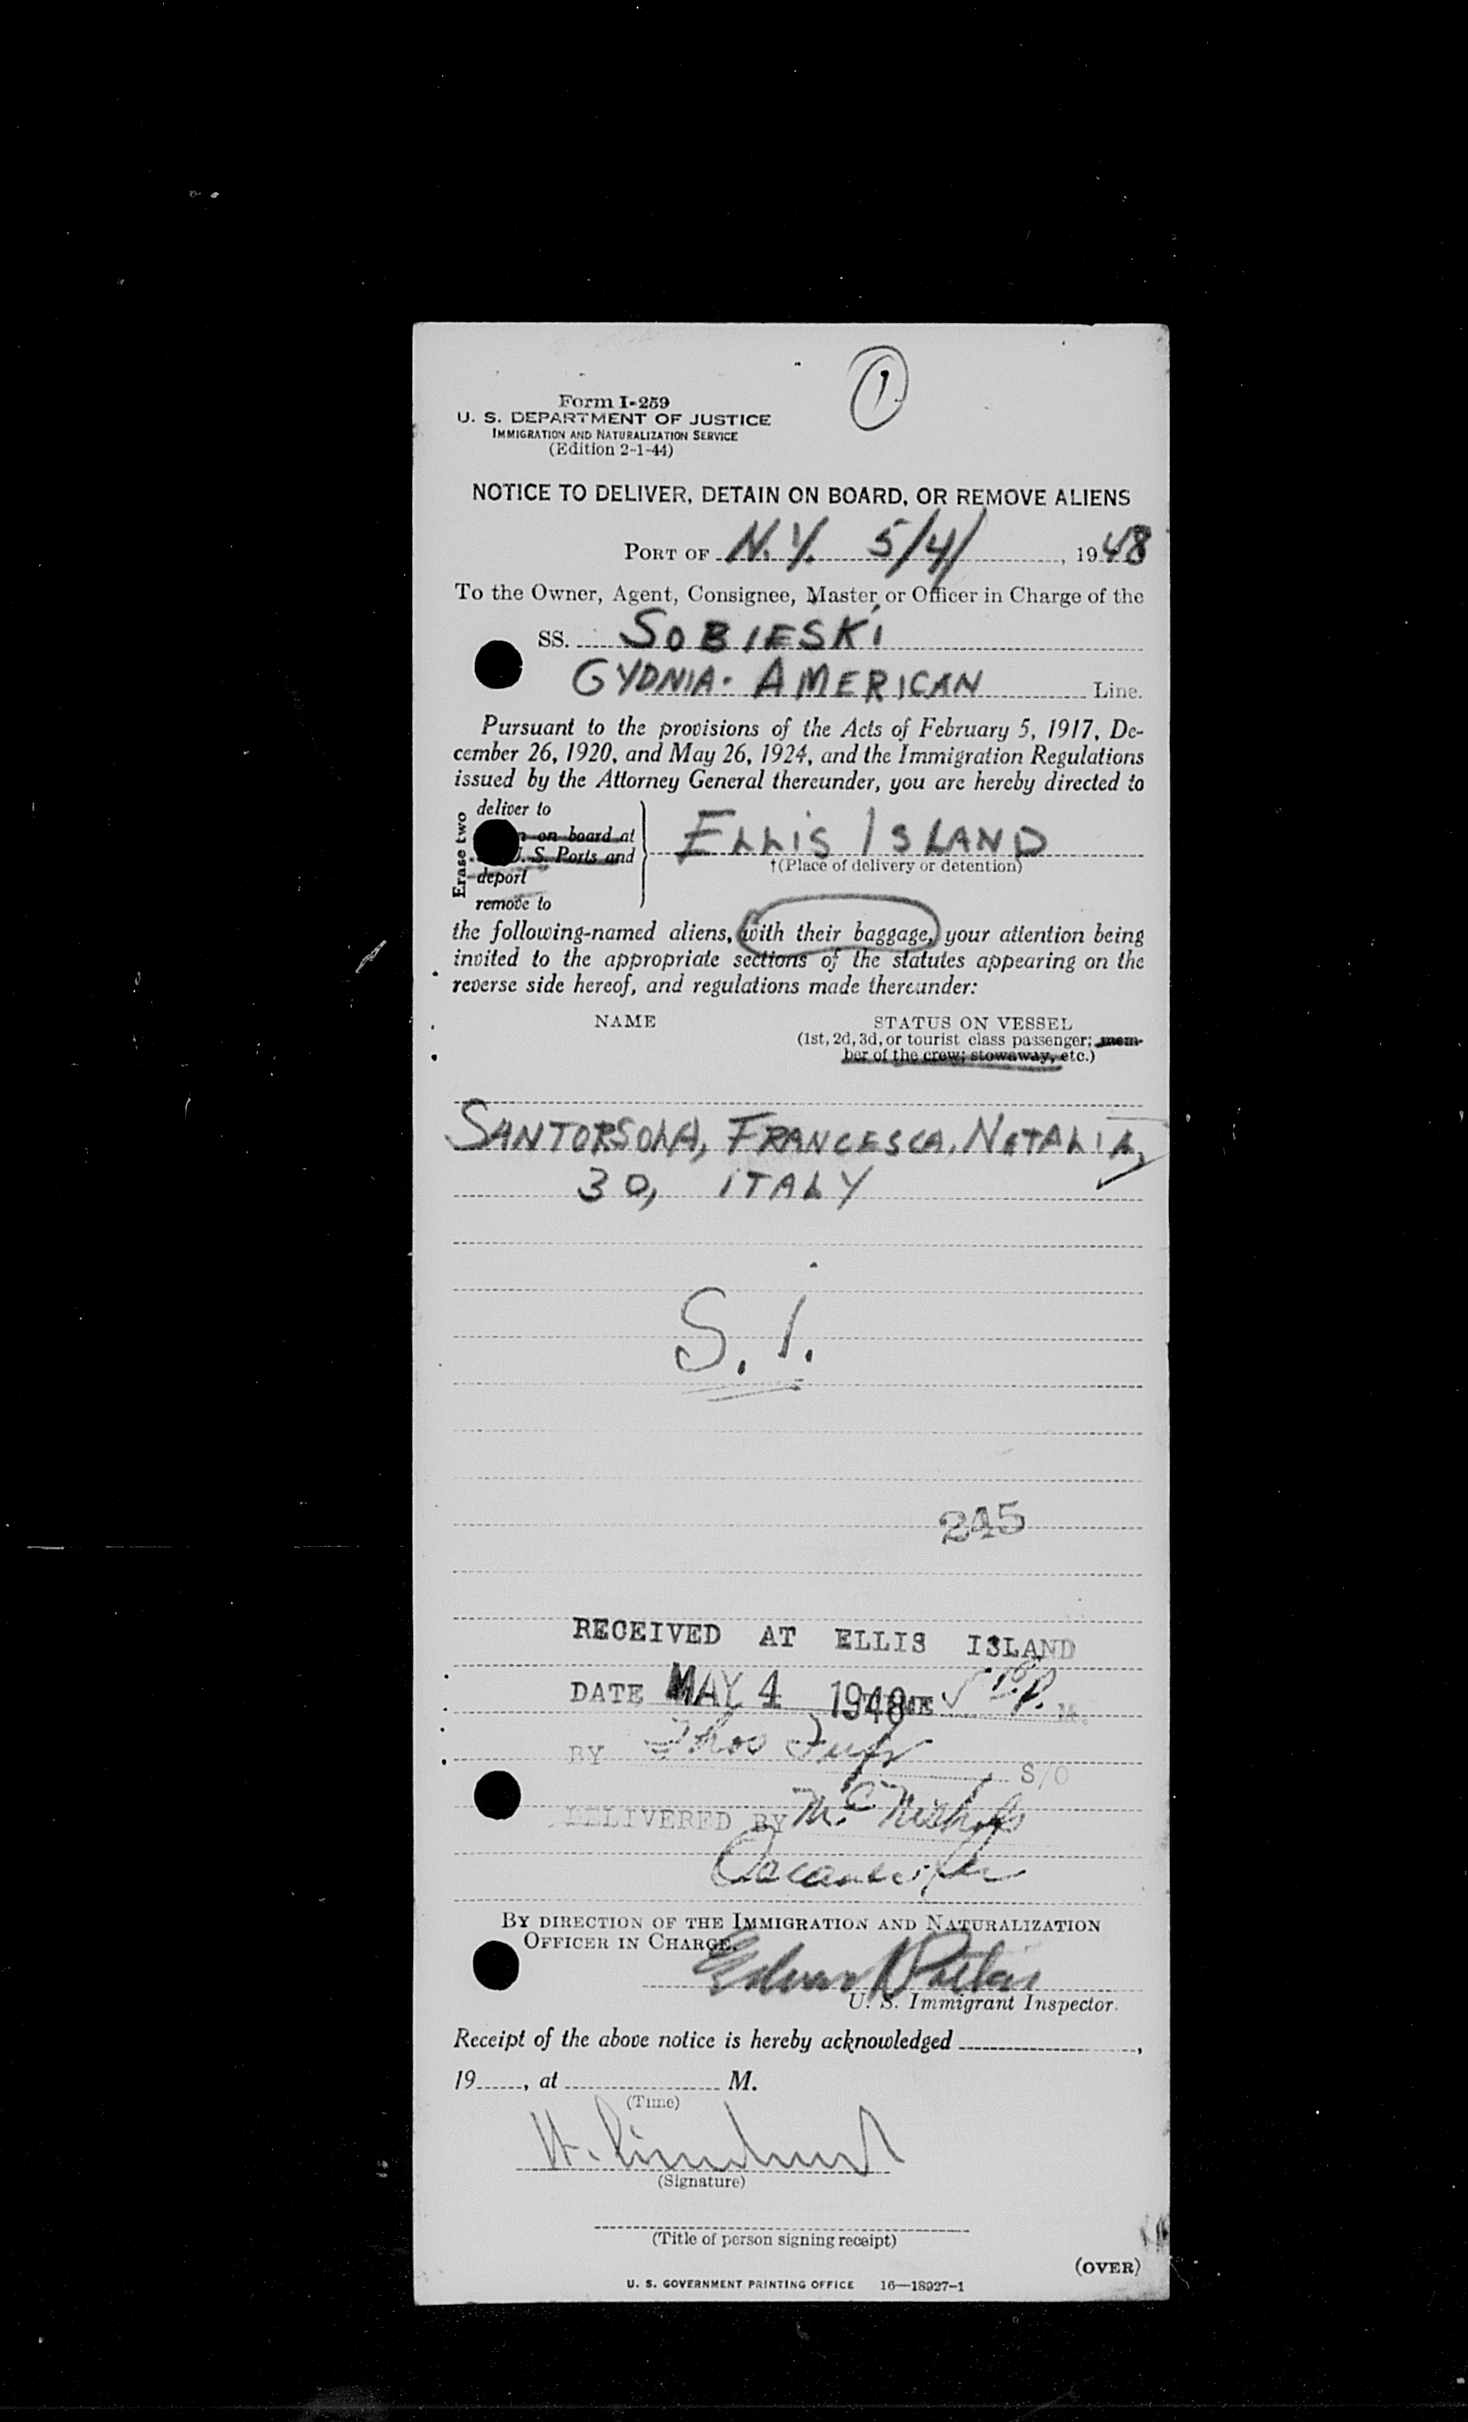 1
Form I-259
U. S. DEPARTMENT OF JUSTICE
IMMIGRATION AND NATURALIZATION SERVICE
(Edition 2-1-44)
NOTICE TO DELIVER, DETAIN ON BOARD, OR REMOVE ALIENS
PORT OF N.Y. 5/4/, 1948
To the Owner, Agent, Consignee, Master, or Officer in Charge of the
SS. SOBIESKI
GYDNIA-AMERICAN Line.
Pursuant to the provisions of the Acts of February 5, 1917, De-
cember 26, 1920, and May 26, 1924, and the Immigration Regulations
issued by the Attorney General thereunder, you are hereby directed to
Erase two
deliver to
on board at
U. S. Ports and
deport
remove to
ELLIS ISLAND
†(Place of delivery or detention)
the following-named aliens, with their baggage, your attention being
invited to the appropriate sections of the statutes appearing on the
reverse side hereof, and regulations made thereunder:
NAME STATUS ON VESSEL
(1st, 2d, 3d, or tourist class passenger; mem-
ber of the crew; stowaway, etc.)
SANTORSOLA, FRANCESCA, NATALIA,
30, ITALY
S.I.
245
RECEIVED AT ELLIS ISLAND
DATE MAY 4 1948 TIME P. M.
BY Thos S/O
DELIVERED BY McNichols
BY DIRECTION OF THE IMMIGRATION AND NATURALIZATION
OFFICER IN CHARGE.
U. S. Immigrant Inspector.
Receipt of the above notice is hereby acknowledged ,
19 , at M.
(Time)
H.
(Signature)
(Title of person signing receipt)
(OVER)
U. S. GOVERNMENT PRINTING OFFICE 16—18927-1